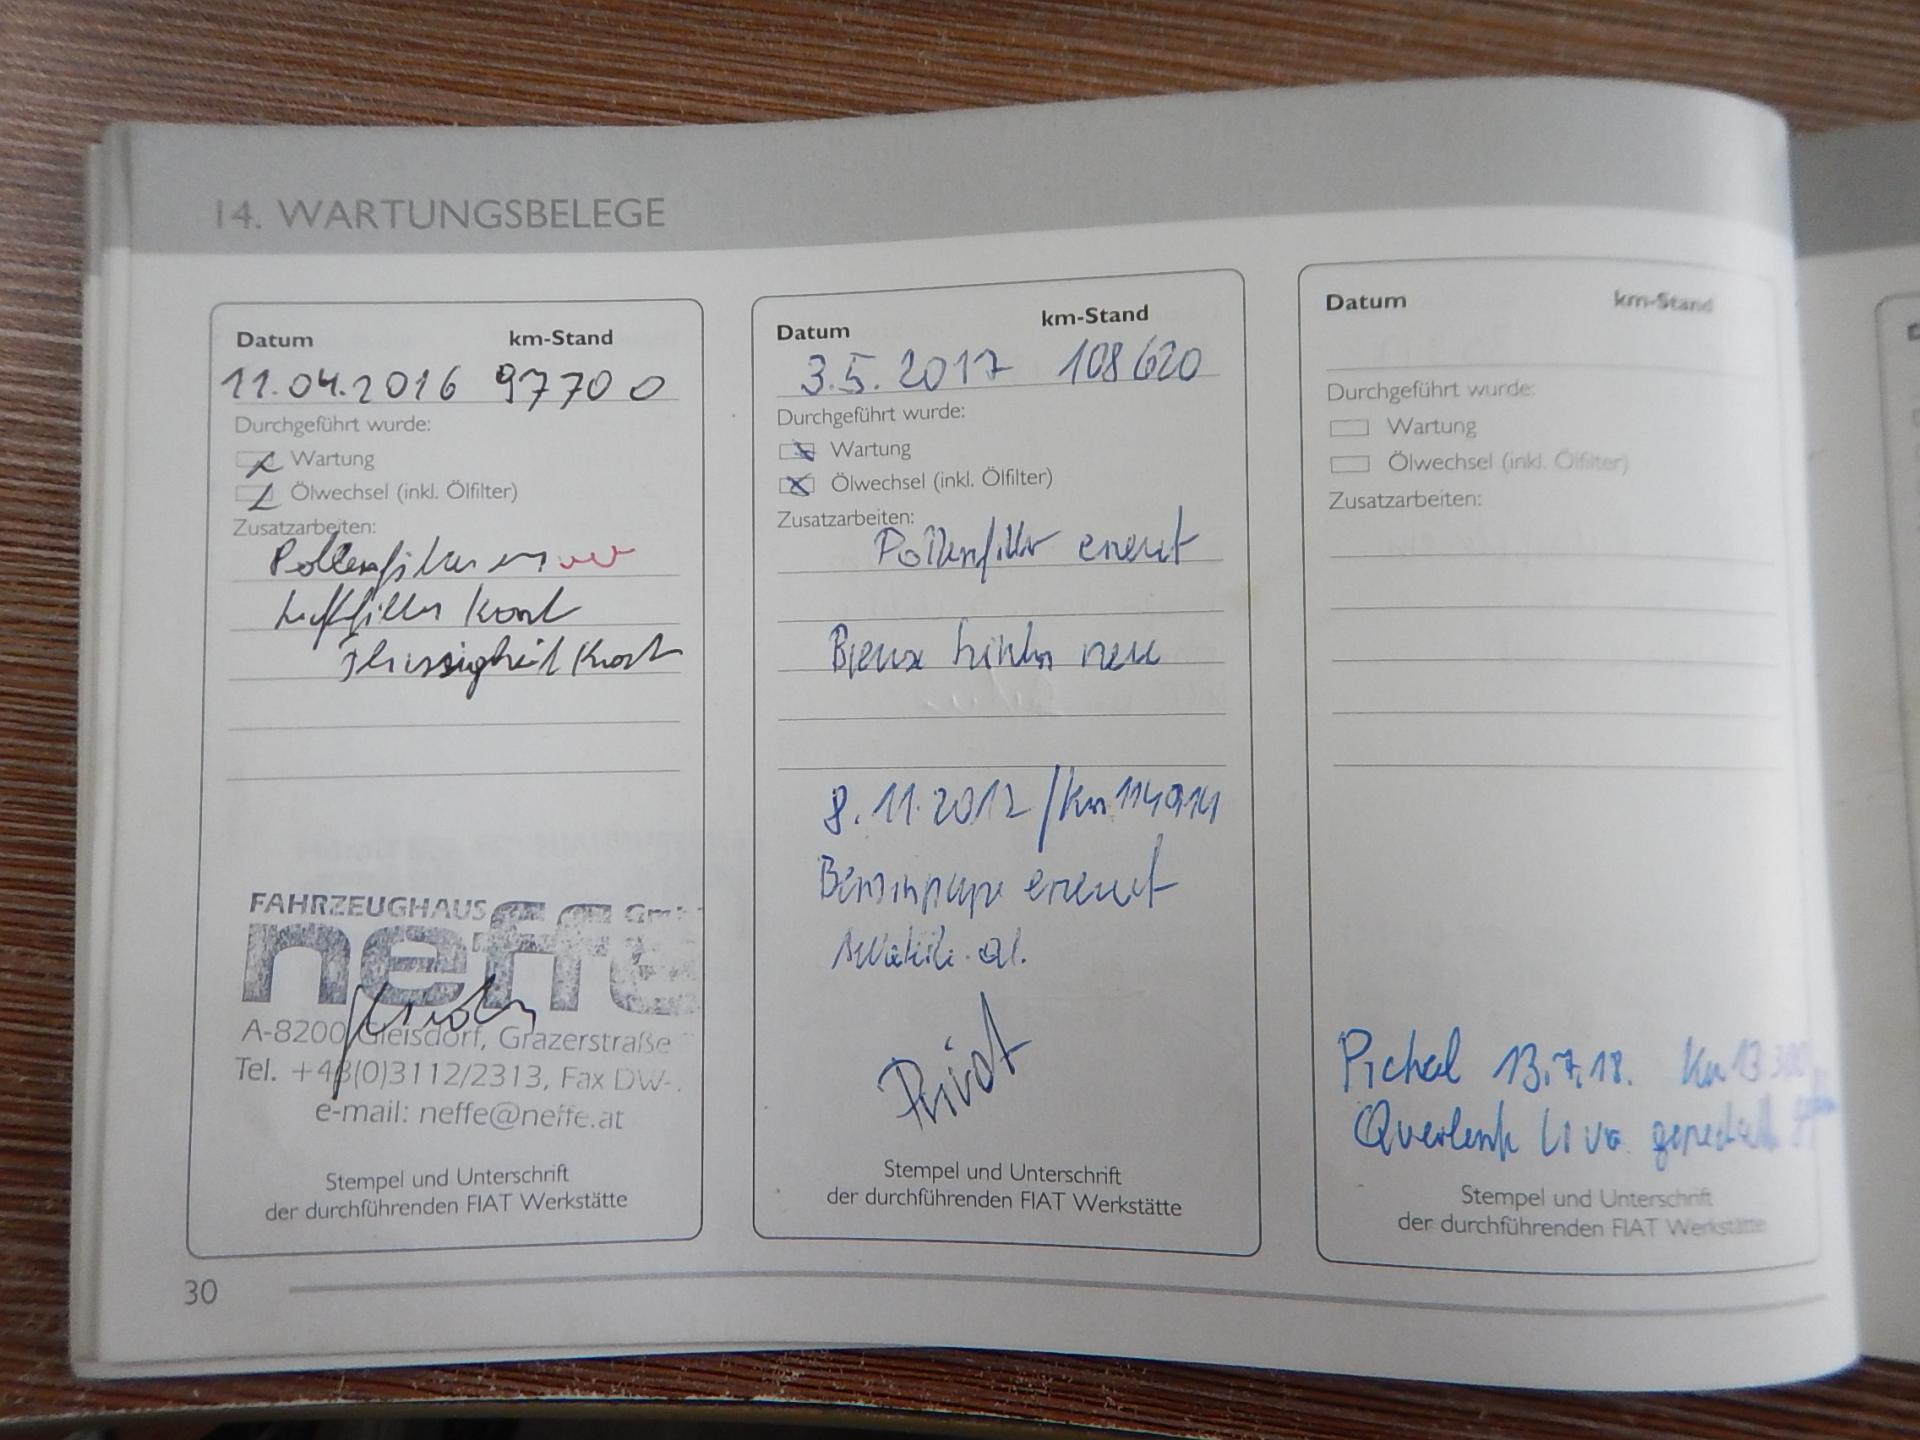 14. WARTUNGSBELEGE
Datum km-Stand
11.04.2016 97700
Durchgeführt wurde:
Wartung
Ölwechsel (inkl. Ölfilter)
Zusatzarbeiten:
Pollenfilter
Luftfilter Kont
Flüssigkeit Kont
FAHRZEUGHAUS
neffe
A-8200 Gleisdorf, Grazerstraße
Tel. +43(0)3112/2313, Fax DW-
e-mail: neffe@neffe.at
Stempel und Unterschrift
der durchführenden FIAT Werkstätte
30
Datum km-Stand
3.5.2017 108620
Durchgeführt wurde:
Wartung
Ölwechsel (inkl. Ölfilter)
Zusatzarbeiten:
Pollenfilter erneut
hinten neu
8.11.2017 /Km 114914
erneut
Privat
Stempel und Unterschrift
der durchführenden FIAT Werkstätte
Datum km-Stand
Durchgeführt wurde:
Wartung
Ölwechsel (inkl. Ölfilter)
Zusatzarbeiten:
Pichal 13.7.18. Km
Querlenk
Stempel und Unterschrift
der durchführenden FIAT Werkstätte